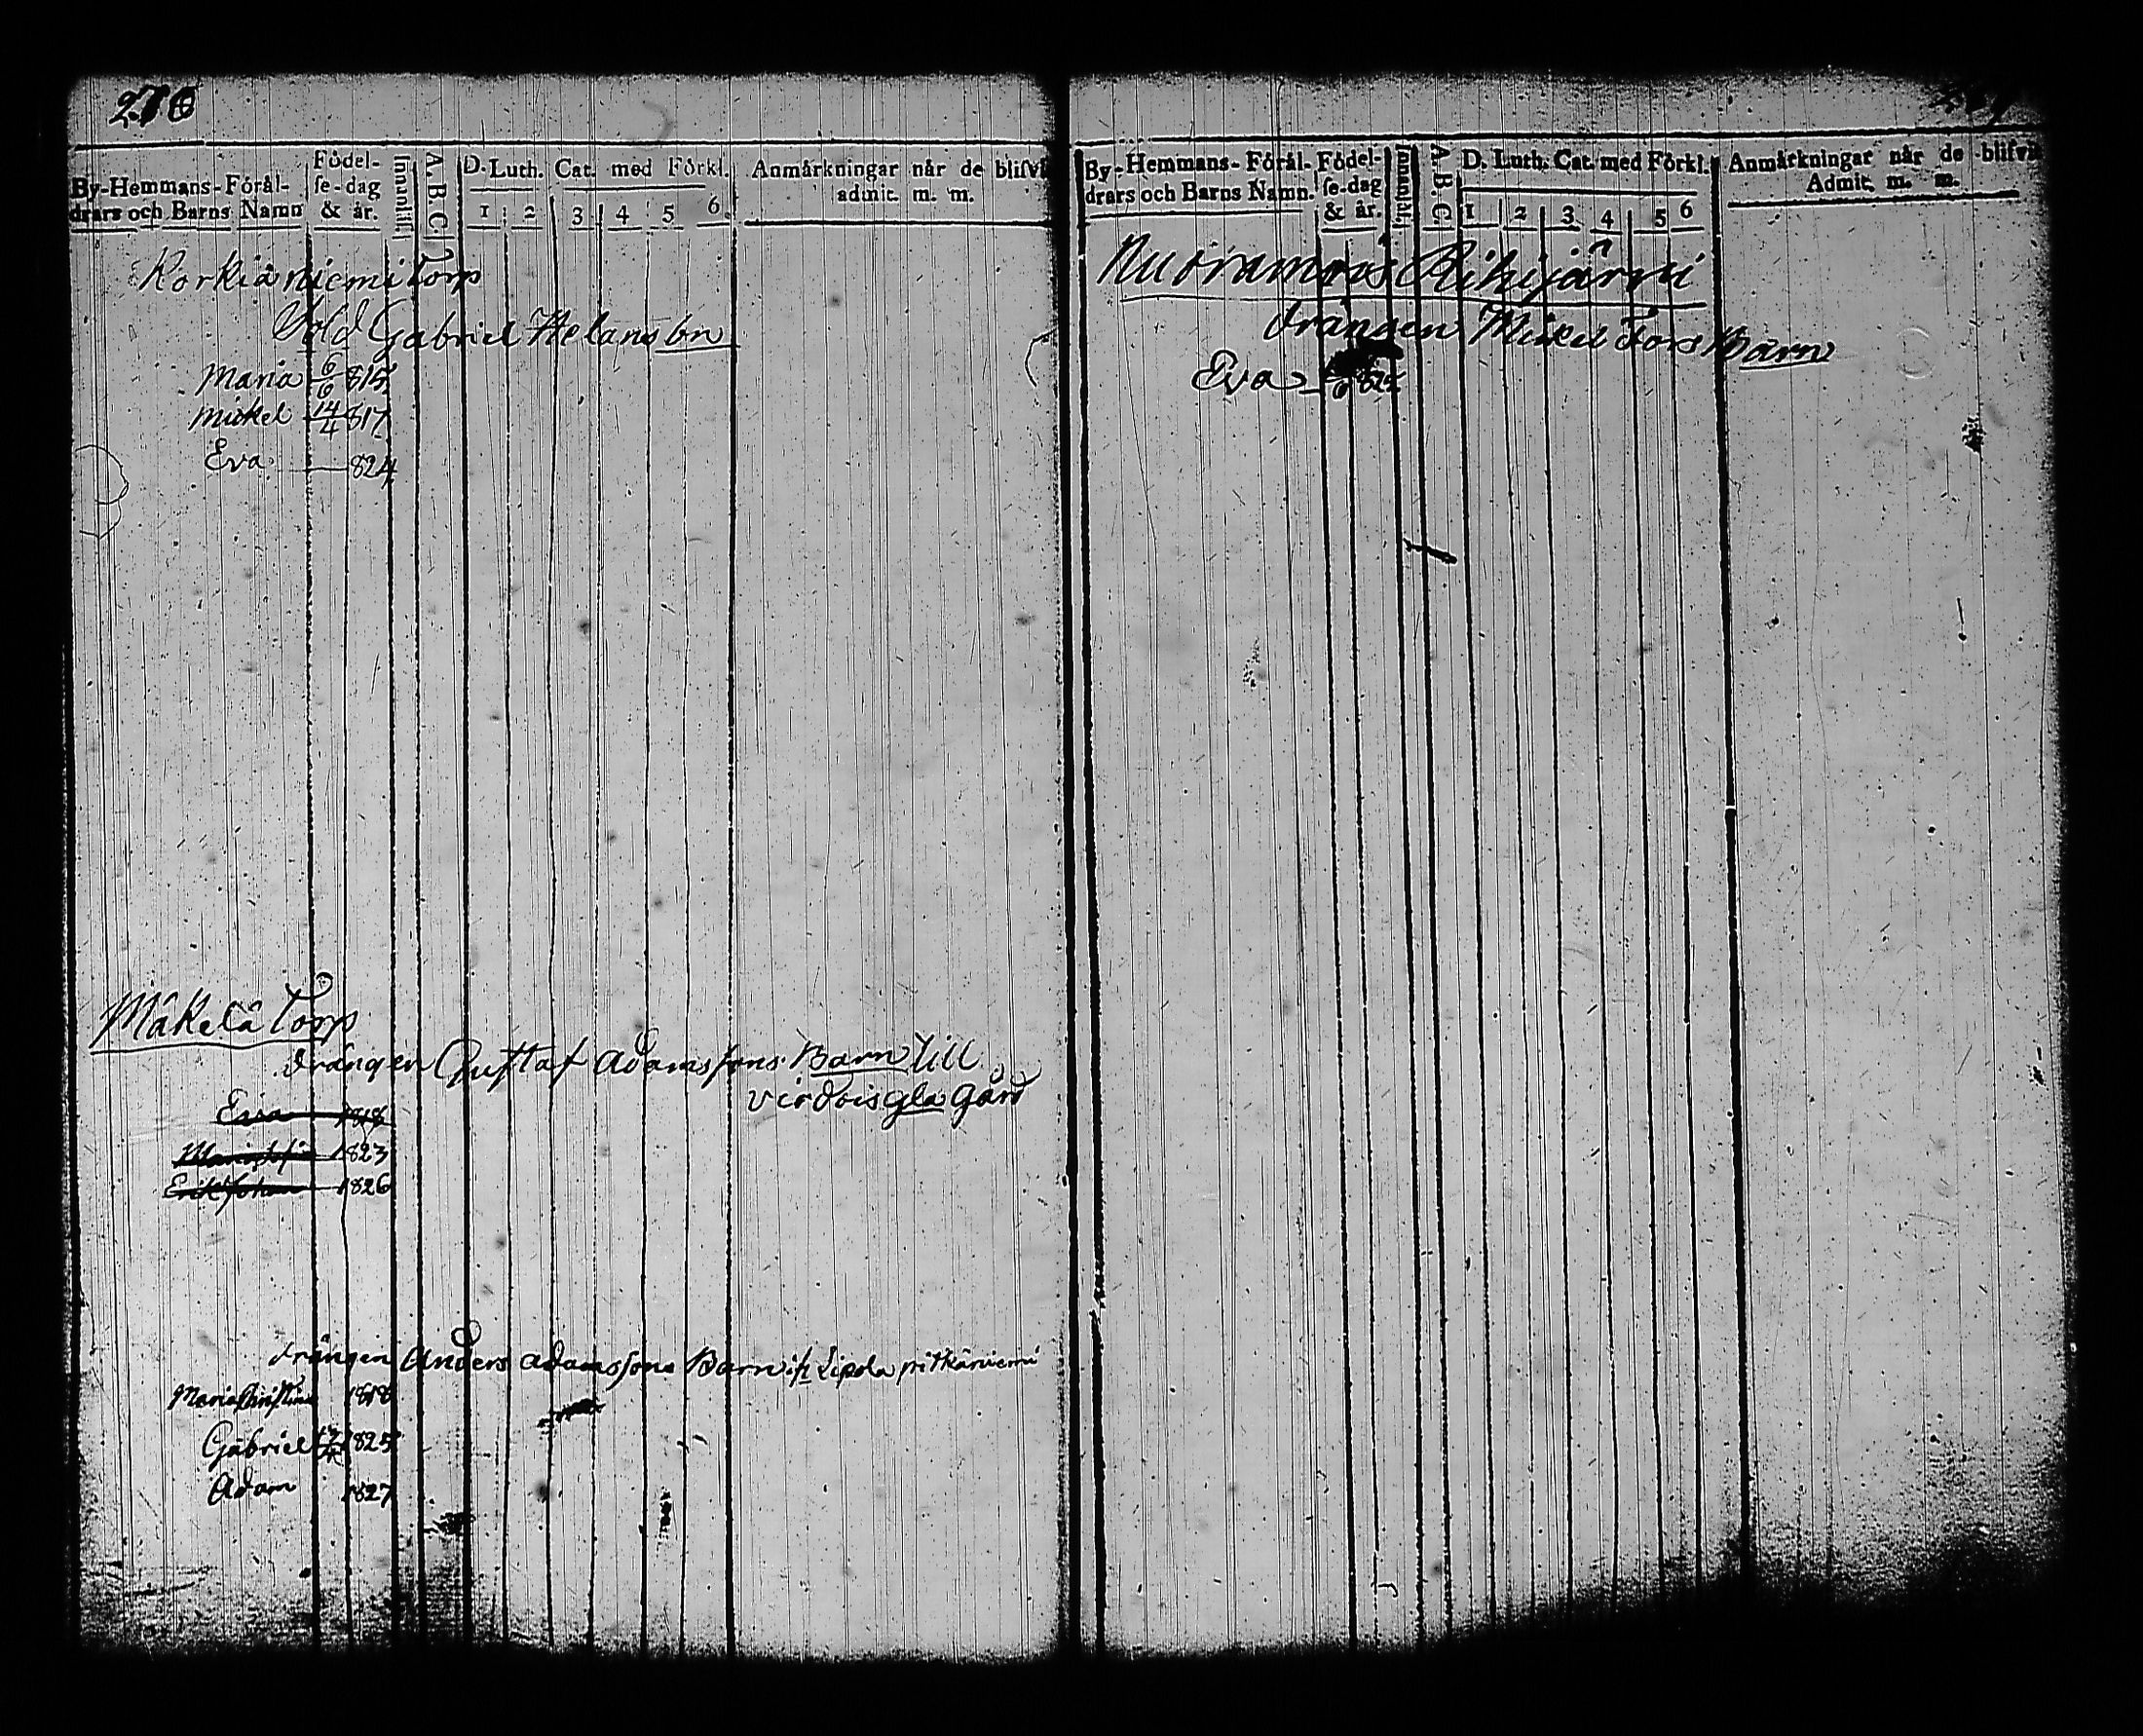 By-Hemmans-Förål-
drars och Barns Namn
Födel-
se-dag
& år.
Innantill
A. B. C.
D. Luth. Cat. med Förkl.
1 2 3 4 5 6
Anmärkningar när de blifvit
admit. m. m.
Korkianiemi Torp
Gabriel Helans bn
Maria 6/6 815
Mickel 14/4 817
Eva 824
Mäkelä Torp
drängen Gustaf Adamssons Barn till
Gård
Eva 1818
1823
Erik Johan 1826
drängen Anders Adamssons Barn Lipola pitkäniemi
Maria Christina 1818
Gabriel 1825
Adam 1827
By-Hemmans-Förål-
drars och Barns Namn.
Födel-
se-dag
& år.
Innantill.
A. B. C.
D. Luth. Cat. med Förkl.
1 2 3 4 5 6
Anmärkningar när de blifvit
Admit. m. m.
Rihijärvi
drängen Mickel Fors Barn
Eva